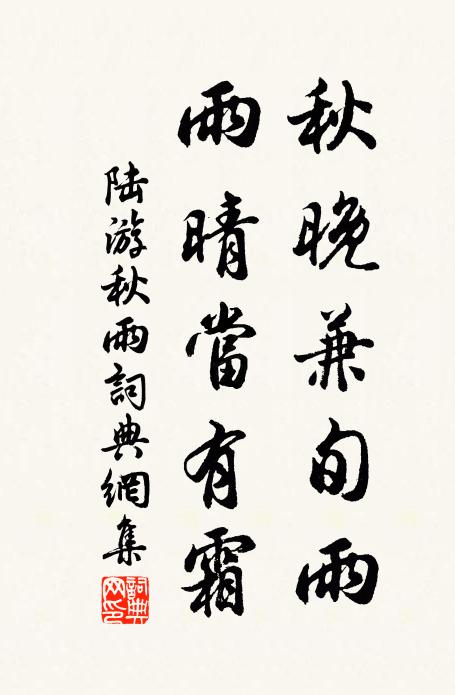 秋晚兼旬雨
雨晴當有霜
陆游秋雨詞典網集
詞典网印